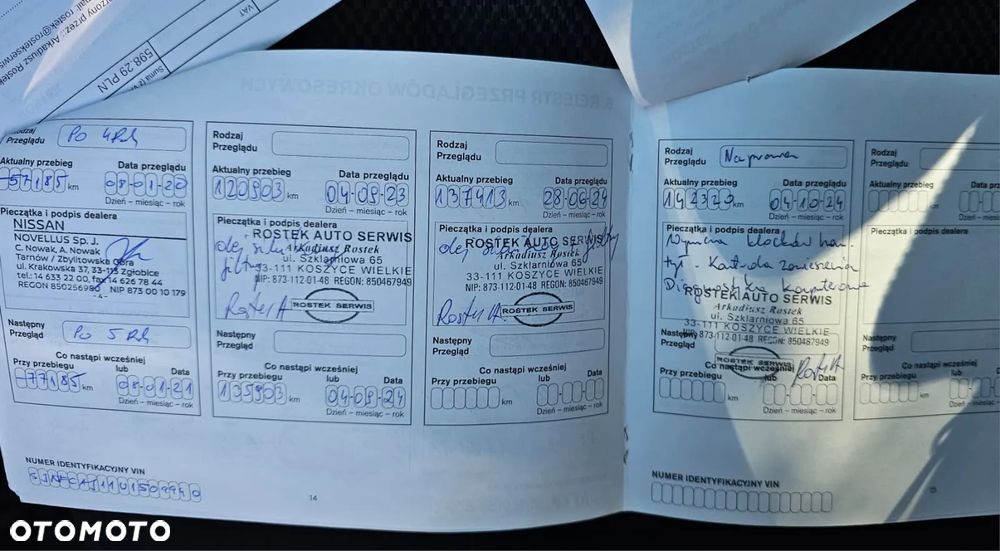 orzony przez: Arkadiusz Rostek
mail: rostek@rostekserwis
VAT
598.29 PLN
Suma
Rodzaj
Przeglądu
Po 4 Rd
Aktualny przebieg
Data przeglądu
57185 km
08-01-20
Dzień – miesiąc – rok
Pieczątka i podpis dealera
NISSAN
NOVELLUS Sp. J.
C. Nowak, A. Nowak
Tarnów / Zbylitowska Góra
ul. Krakowska 37, 33-113 Zgłobice
tel.: 14 633 22 00, fax 14 626 78 44
REGON 850256980 NIP 873 00 10 179
- 4 -
Następny
Przegląd
Po 5 Rd
Co nastąpi wcześniej
Przy przebiegu
lub
Data
77185 km
08-01-21
Dzień – miesiąc – rok
NUMER IDENTYFIKACYJNY VIN
Rodzaj
Przeglądu
Aktualny przebieg
Data przeglądu
120903 km
04-09-23
Dzień – miesiąc – rok
Pieczątka i podpis dealera
ROSTEK AUTO SERWIS
Arkadiusz Rostek
ul. Szklarniowa 65
33-111 KOSZYCE WIELKIE
NIP: 873-112-01-48 REGON: 850467949
olej
filtry
Rostek A
ROSTEK SERWIS
Następny
Przegląd
Co nastąpi wcześniej
Przy przebiegu
lub
Data
135903 km
04-09-24
Dzień – miesiąc – rok
14
Rodzaj
Przeglądu
Aktualny przebieg
Data przeglądu
137413 km
28-06-24
Dzień – miesiąc – rok
Pieczątka i podpis dealera
ROSTEK AUTO SERWIS
Arkadiusz Rostek
ul. Szklarniowa 65
33-111 KOSZYCE WIELKIE
NIP: 873-112-01-48 REGON: 850467949
olej
filtry
Rostek A
ROSTEK SERWIS
Następny
Przegląd
Co nastąpi wcześniej
Przy przebiegu
lub
Data
km
Dzień – miesiąc – rok
Rodzaj
Przeglądu
Naprawa
Aktualny przebieg
Data przeglądu
142379 km
04-10-24
Dzień – miesiąc – rok
Pieczątka i podpis dealera
Wymiana klocków ham.
tył.
zawieszenia
Diagnostyka komputerowa
ROSTEK AUTO SERWIS
Arkadiusz Rostek
ul. Szklarniowa 65
33-111 KOSZYCE WIELKIE
NIP: 873-112-01-48 REGON: 850467949
ROSTEK SERWIS
Rostek A
Następny
Przegląd
Co nastąpi wcześniej
Przy przebiegu
lub
Data
km
Dzień – miesiąc – rok
NUMER IDENTYFIKACYJNY VIN
Rodzaj
Przeglądu
Aktualny przebieg
km
Dzień
Pieczątka i podpis dealera
Następny
Przegląd
Co nastąpi
Przy przebiegu
km
15
OTOMOTO